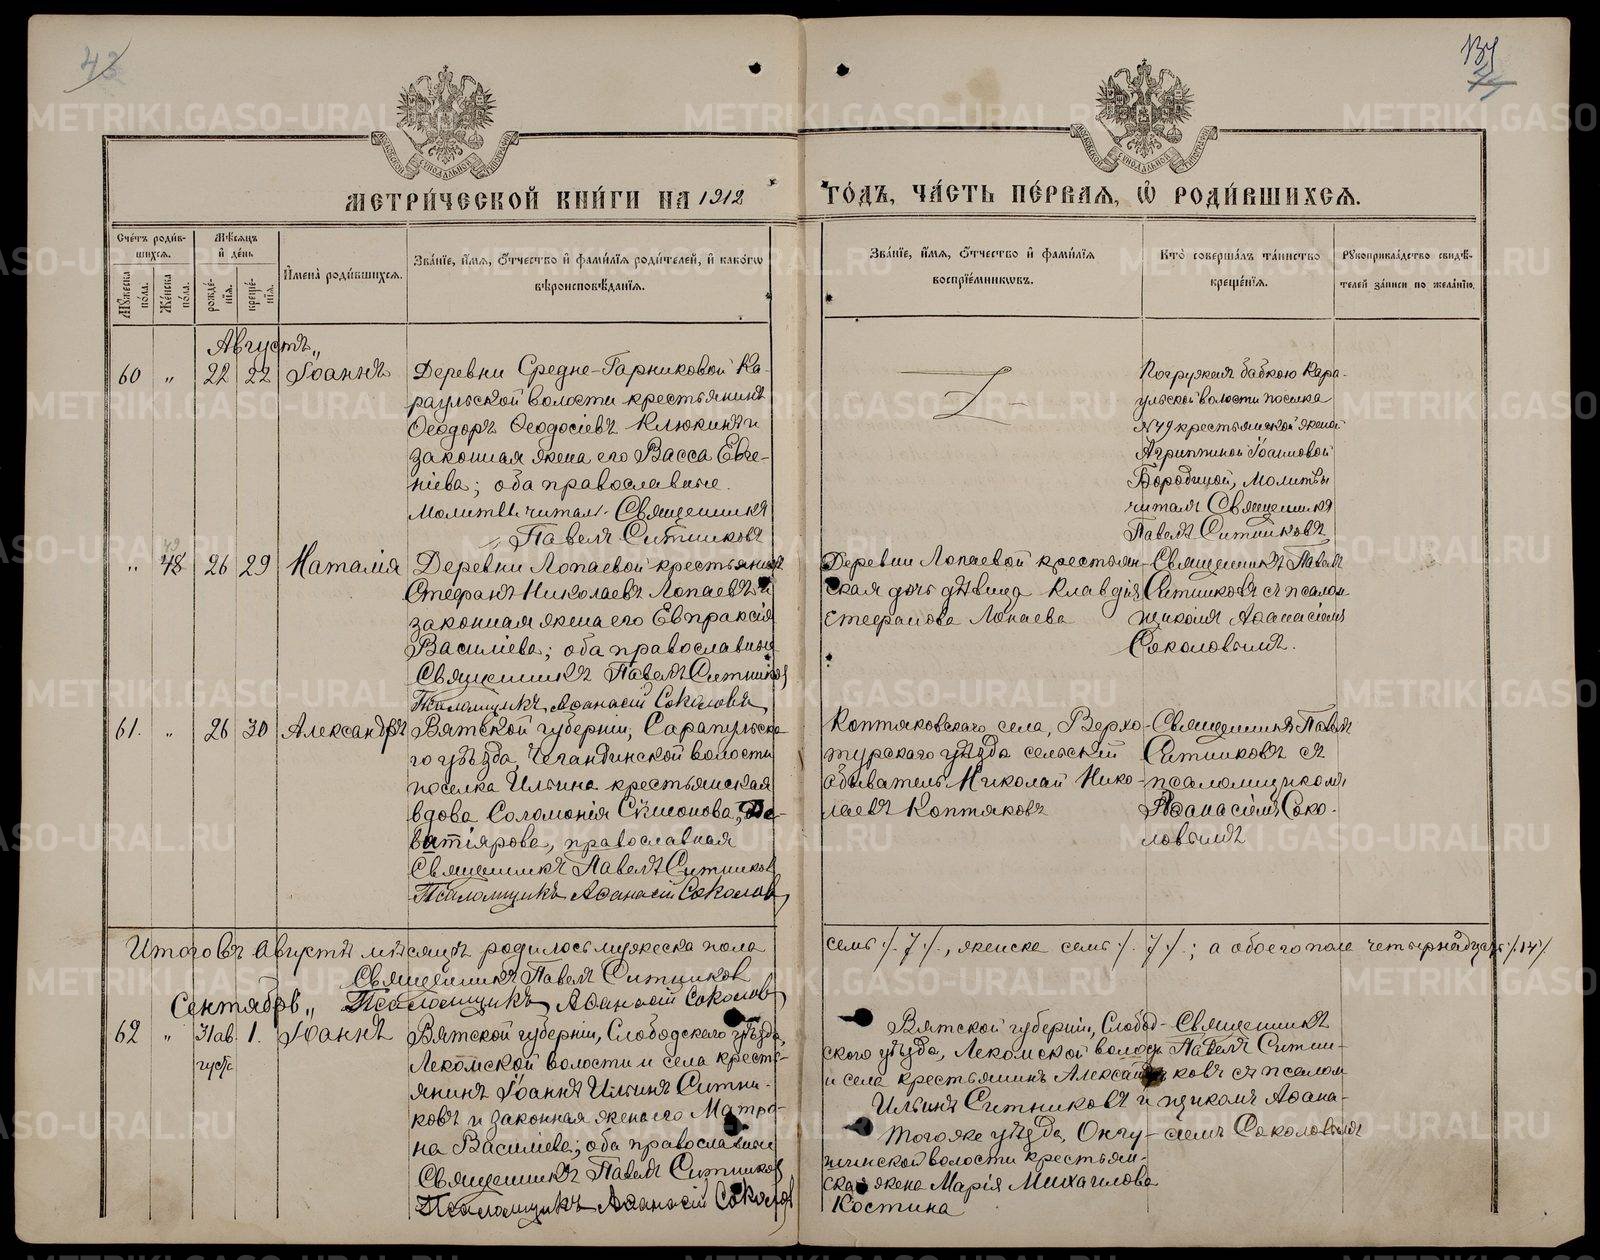 43
137
МЕТРИ́ЧЕСКОЙ КНИ́ГИ НА 1912
ГО́ДЪ, ЧА́СТЬ ПЕ́РВАЯ, Ѡ҆ РОДИ́ВШИХСЯ.
Сче́тъ роди́вшихся.
Мꙋ́жеска по́ла.
Же́нска по́ла.
Мѣ́сяцъ и҆ де́нь
рожде́нїя.
креще́нїя.
И҆мена̀ роди́вшихся.
Зва́нїе, и҆́мя, ѻ҆́тчество и҆ фами́лїя роди́телей, и҆ како́гѡ
вѣроисповѣ́данїя.
Зва́нїе, и҆́мя, ѻ҆́тчество и҆ фами́лїя
воспрїе́мникѡвъ.
Кто̀ соверша́лъ та́инство
креще́нїя.
Рꙋкоприкла́дство свидѣ́-
телей за́писи по жела́нїю.
Августъ„
60 „ 22 22 Іоаннъ
Деревни Средне-Гарниковой Ка-
раульской волости крестьянинъ
Ѳеодоръ Ѳеодосіевъ Клюкинъ и
законная жена его Васса Евге-
ніева; оба православные.
Молитвы читалъ. Священникъ
Павелъ Ситниковъ
Погружалъ бабкою Кара-
ульской волости поселка
№ 49 крестьянской женой
Агриппиной Іоанновой
Бородиной, Молитвы
читалъ Священникъ
Павелъ Ситниковъ
„ 48 26 29 Наталія
Деревни Лопаевой крестьянинъ
Стефанъ Николаевъ Лопаевъ и
законная жена его Евпраксія
Василіева; оба православные
Священникъ Павелъ Ситников
Псаломщикъ Аѳанасій Соколовъ
Деревни Лопаевой крестьян-
ская дочь дѣвица Клавдія
Стефанова Лопаева
Священникъ Павелъ
Ситниковъ съ псалом-
щикомъ Аѳанасіемъ
Соколовымъ.
61. „ 26 30 Александръ
Вятской губерніи, Сарапульска-
го уѣзда, Чегандинской волости
поселка Ильина крестьянская
вдова Соломонія Симонова, Де-
ватіярова, православная
Священникъ Павелъ Ситников
Псаломщикъ Аѳанасій Соколов
Коптяковскаго села, Верхо-
турскаго уѣзда сельскій
обыватель Николай Нико-
лаевъ Коптяковъ
Священникъ Павелъ
Ситниковъ съ
псаломщикомъ
Аѳанасіемъ Соко-
ловымъ
Итого въ Августѣ мѣсяцѣ родилось мужеска пола
семь /. 7 /., женска семь /. 7 /.; а обоего пола четырнадцать /. 14 /.
Священникъ Павелъ Ситников
Псаломщикъ Аѳанасій Соколов
Сентябрь„
62 „ 31 Ав. 1. Іоаннъ
густа
Вятской губерніи, Слободского уѣзда,
Лекомской волости и села кресть-
янинъ Іоаннъ Ильинъ Ситни-
ковъ и законная жена его Матро-
на Василіева; оба православные
Священникъ Павелъ Ситников
Псаломщикъ Аѳанасій Соколов
Вятской губерніи, Слобод-
ского уѣзда, Лекомской волости
и села крестьянинъ Александръ
Ильинъ Ситниковъ и
того же уѣзда, Ончу-
шинской волости крестьян-
ская жена Марія Михаилова
Костина
Священникъ
Павелъ Ситни-
ковъ съ псалом-
щикомъ Аѳана-
сіемъ Соколовымъ
METRIKI.GASO-URAL.RU